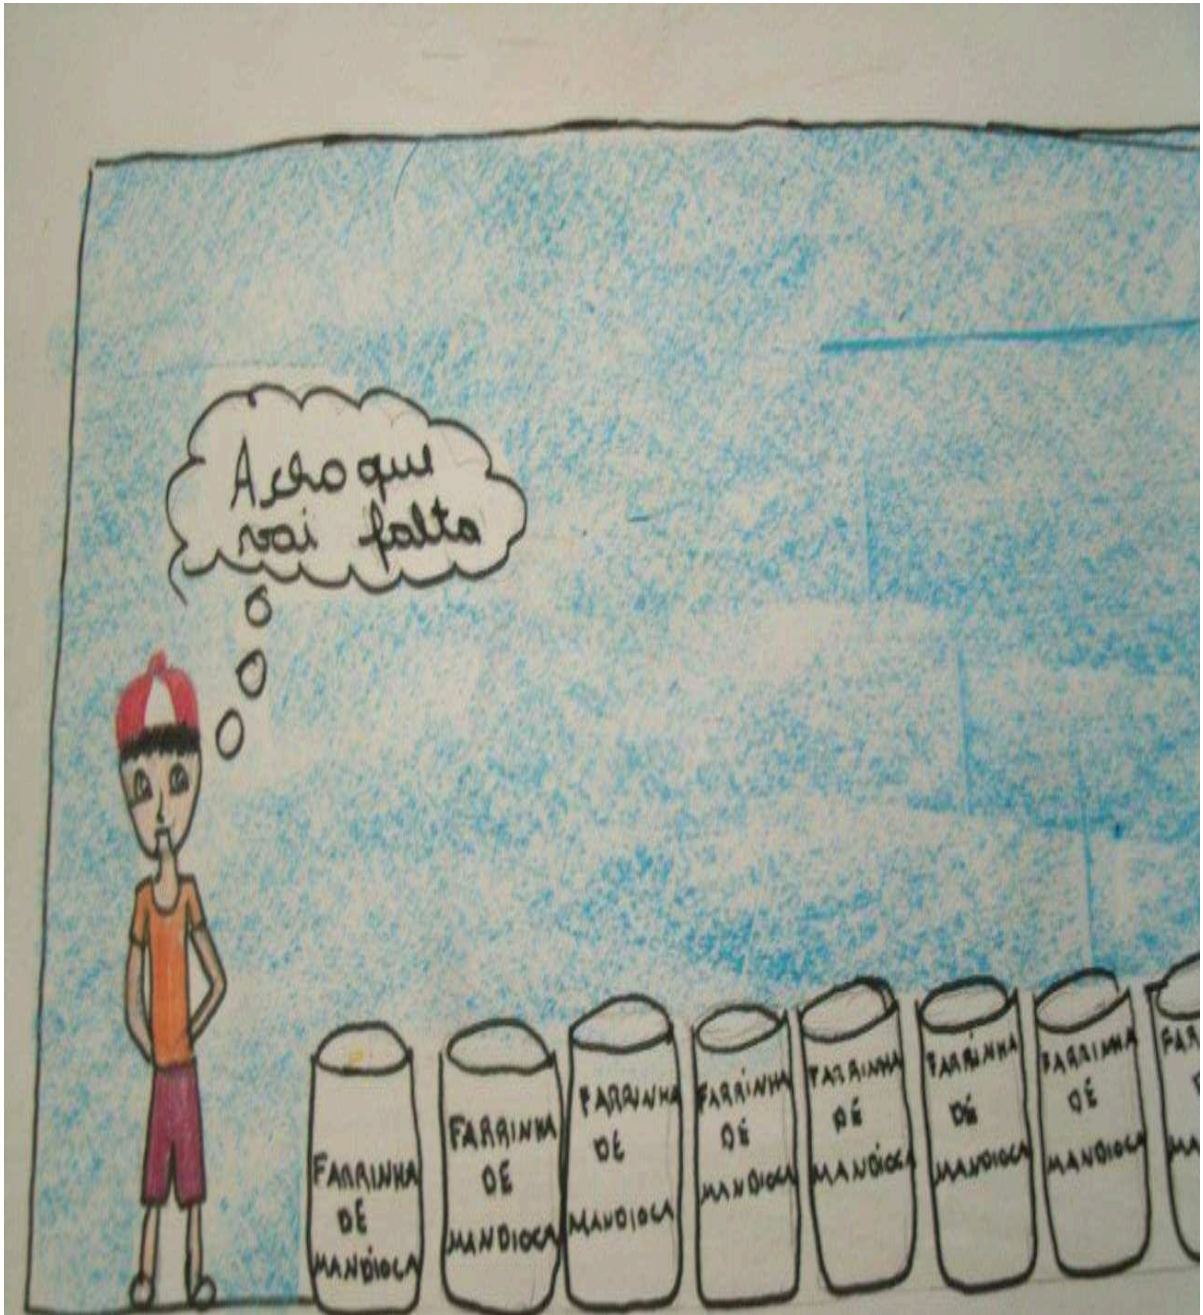 Acho que
vai falta
FARRINHA
DE
MANDIOCA
FARRINHA
DE
MANDIOCA
FARRINHA
DE
MANDIOCA
FARRINHA
DE
MANDIOCA
FARRINHA
DE
MANDIOCA
FARRINHA
DE
MANDIOCA
FARRINHA
DE
MANDIOCA
FAR
MA